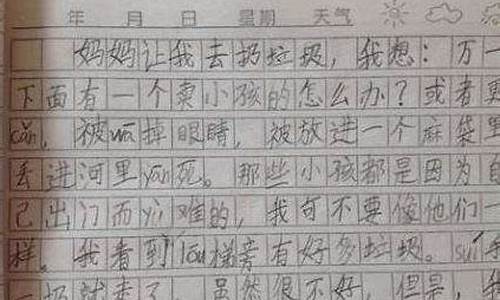 年 月 日 星期 天气
妈妈让我去扔垃圾,我想:万一
下面有一个卖小孩的怎么办?或者更
cǎn,被wā掉眼睛,被放进一个麻袋里
丢进河里yān死。那些小孩都是因为自
己出门而yù难的,我可不要像他们一
样。我看到lóu梯旁有好多垃圾。suí手
一扔就来了 虽然很不好,但是,